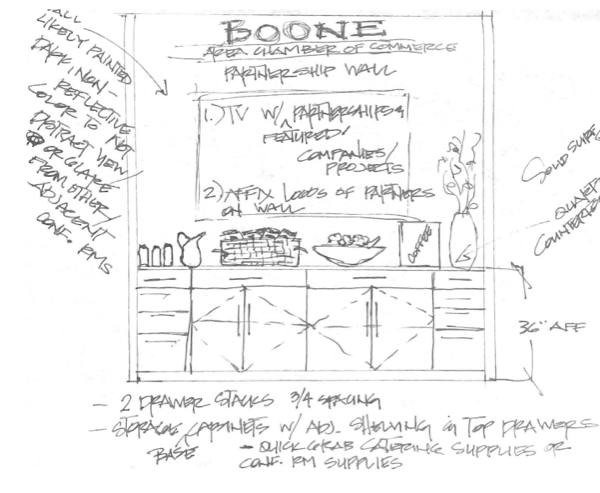 BOONE
AREA CHAMBER OF COMMERCE
PARTNERSHIP WALL
WALL
LIKELY PAINTED
DARK, NON-
REFLECTIVE
COLOR TO NOT
DISTRACT VIEW/
OR GLARE
FROM OTHER/
ADJACENT
CONF. RMS
1.) TV W/ PARTNERSHIPS &
FEATURED/
COMPANIES/
PROJECTS
2.) AFFIX LOGOS OF PARTNERS
ON WALL
COFFEE
SOLID SURF
QUARTZ
COUNTERTO
36" AFF
- 2 DRAWER STACKS 3/4 SPACING
- STORAGE CABINETS W/ ADJ. SHELVING & TOP DRAWERS
BASE
- QUICK GRAB CATERING SUPPLIES OR
CONF. RM SUPPLIES